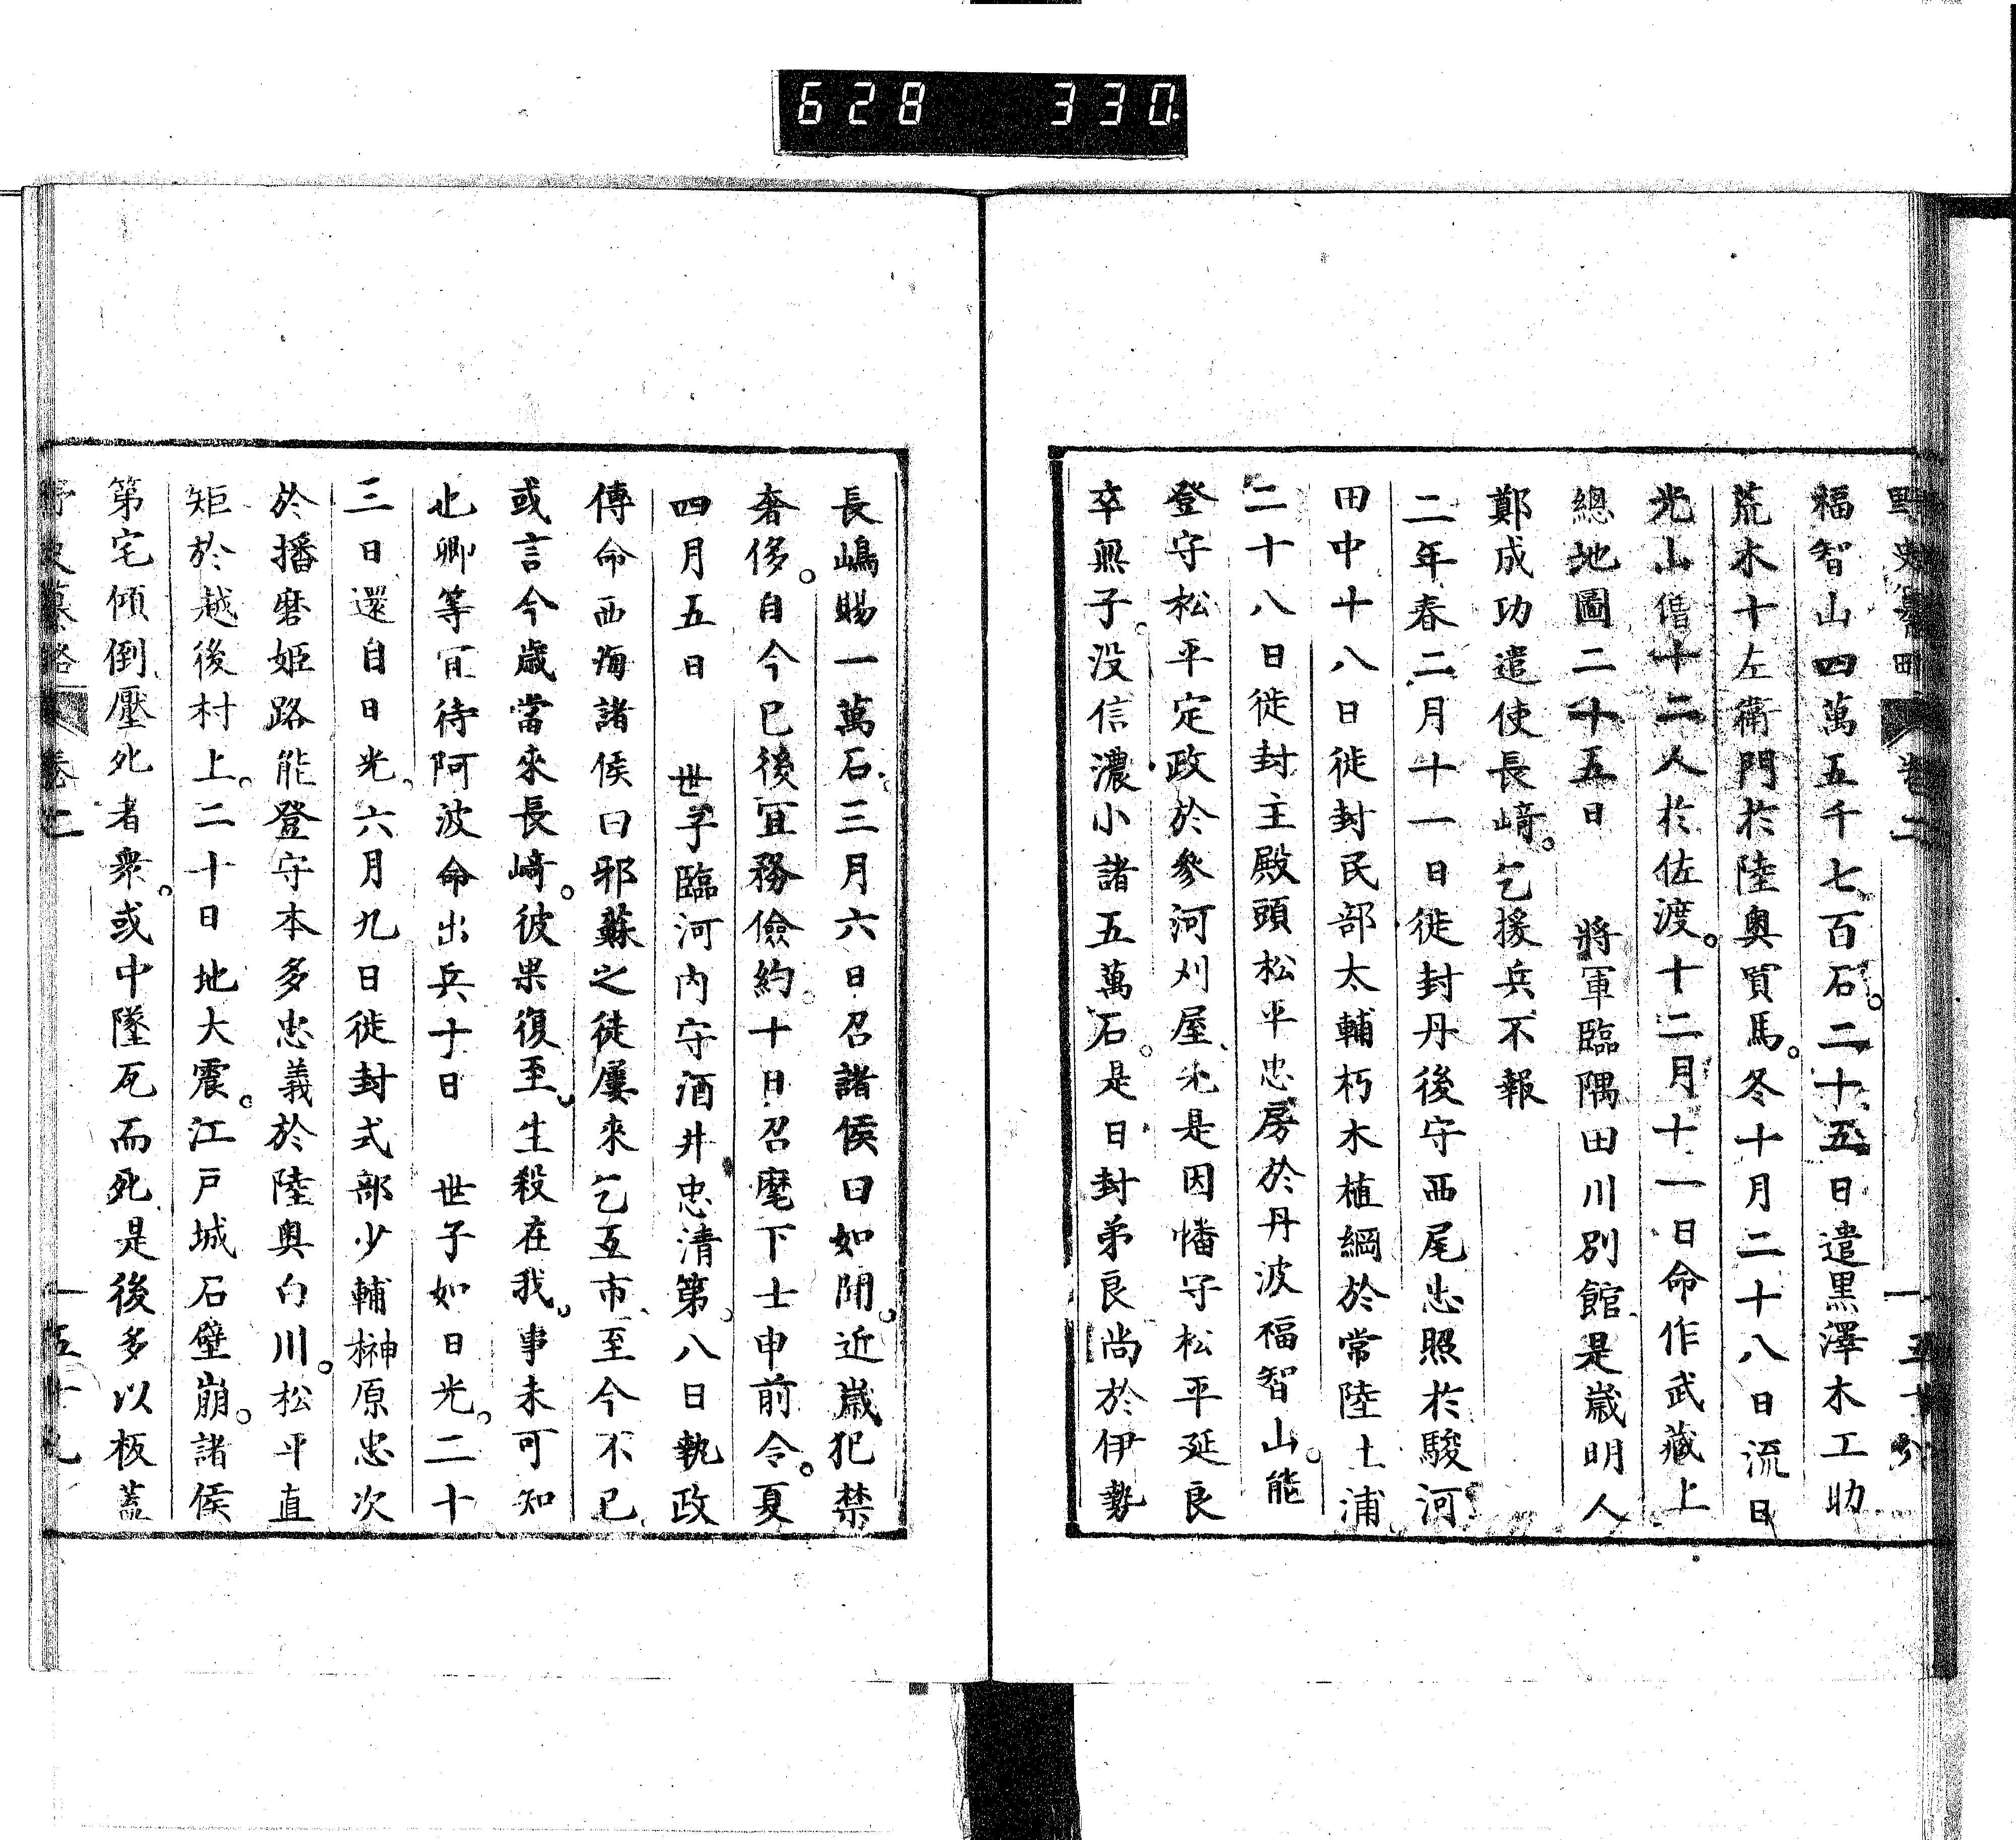 628 330
福智山四萬五千七百石。二十五日遣黒澤木工助
荒木十左衛門於陸奥買馬。冬十月二十八日流日
光山僧十二人於佐渡。十二月十一日命作武藏上
總地圖二十五日 將軍臨隅田川別館是歳明人
鄭成功遣使長﨑。乞援兵不報
二年春二月十一日徙封丹後守西尾忠照於駿河
田中十八日徙封民部太輔朽木植綱於常陸土浦
二十八日徙封主殿頭松平忠房於丹波福智山。能
登守松平定政於參河刈屋、先是因幡守松平延良
卒無子。没信濃小諸五萬石。是日封弟良尚於伊勢
長嶋賜一萬石。三月六日召諸侯曰如聞。近歳犯禁
奢侈。自今已後宜務儉約。十日召麾下士申前令。夏
四月五日 世子臨河内守酒井忠清第。八日執政
傳命西海諸侯曰邪蘇之徒屢來乞互市、至今不已
或言今歳當來長﨑。彼果復至。生殺在我。事未可知
北卿等宜待阿波命出兵十日 世子如日光。二十
三日還自日光。六月九日徙封式部少輔榊原忠次
於播磨姫路能登守本多忠義於陸奥白川。松平直
矩於越後村上。二十日地大震。江戸城石壁崩。諸侯
第宅傾倒壓死者衆。或中墜瓦而死是後多以板蓋
野史纂略 卷二 一 五十九